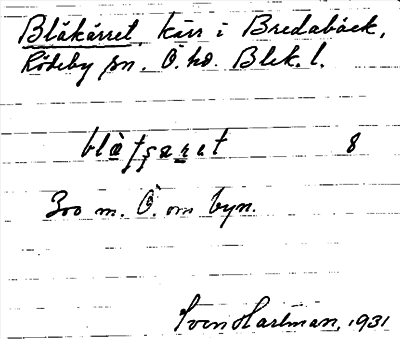 Blåkärret, kärr i Bredabäck,
Rödeby sn. Ö. hd. Blek. l.
blàtʃæret 8
300 m. Ö. om byn.
Sven Hartman, 1931